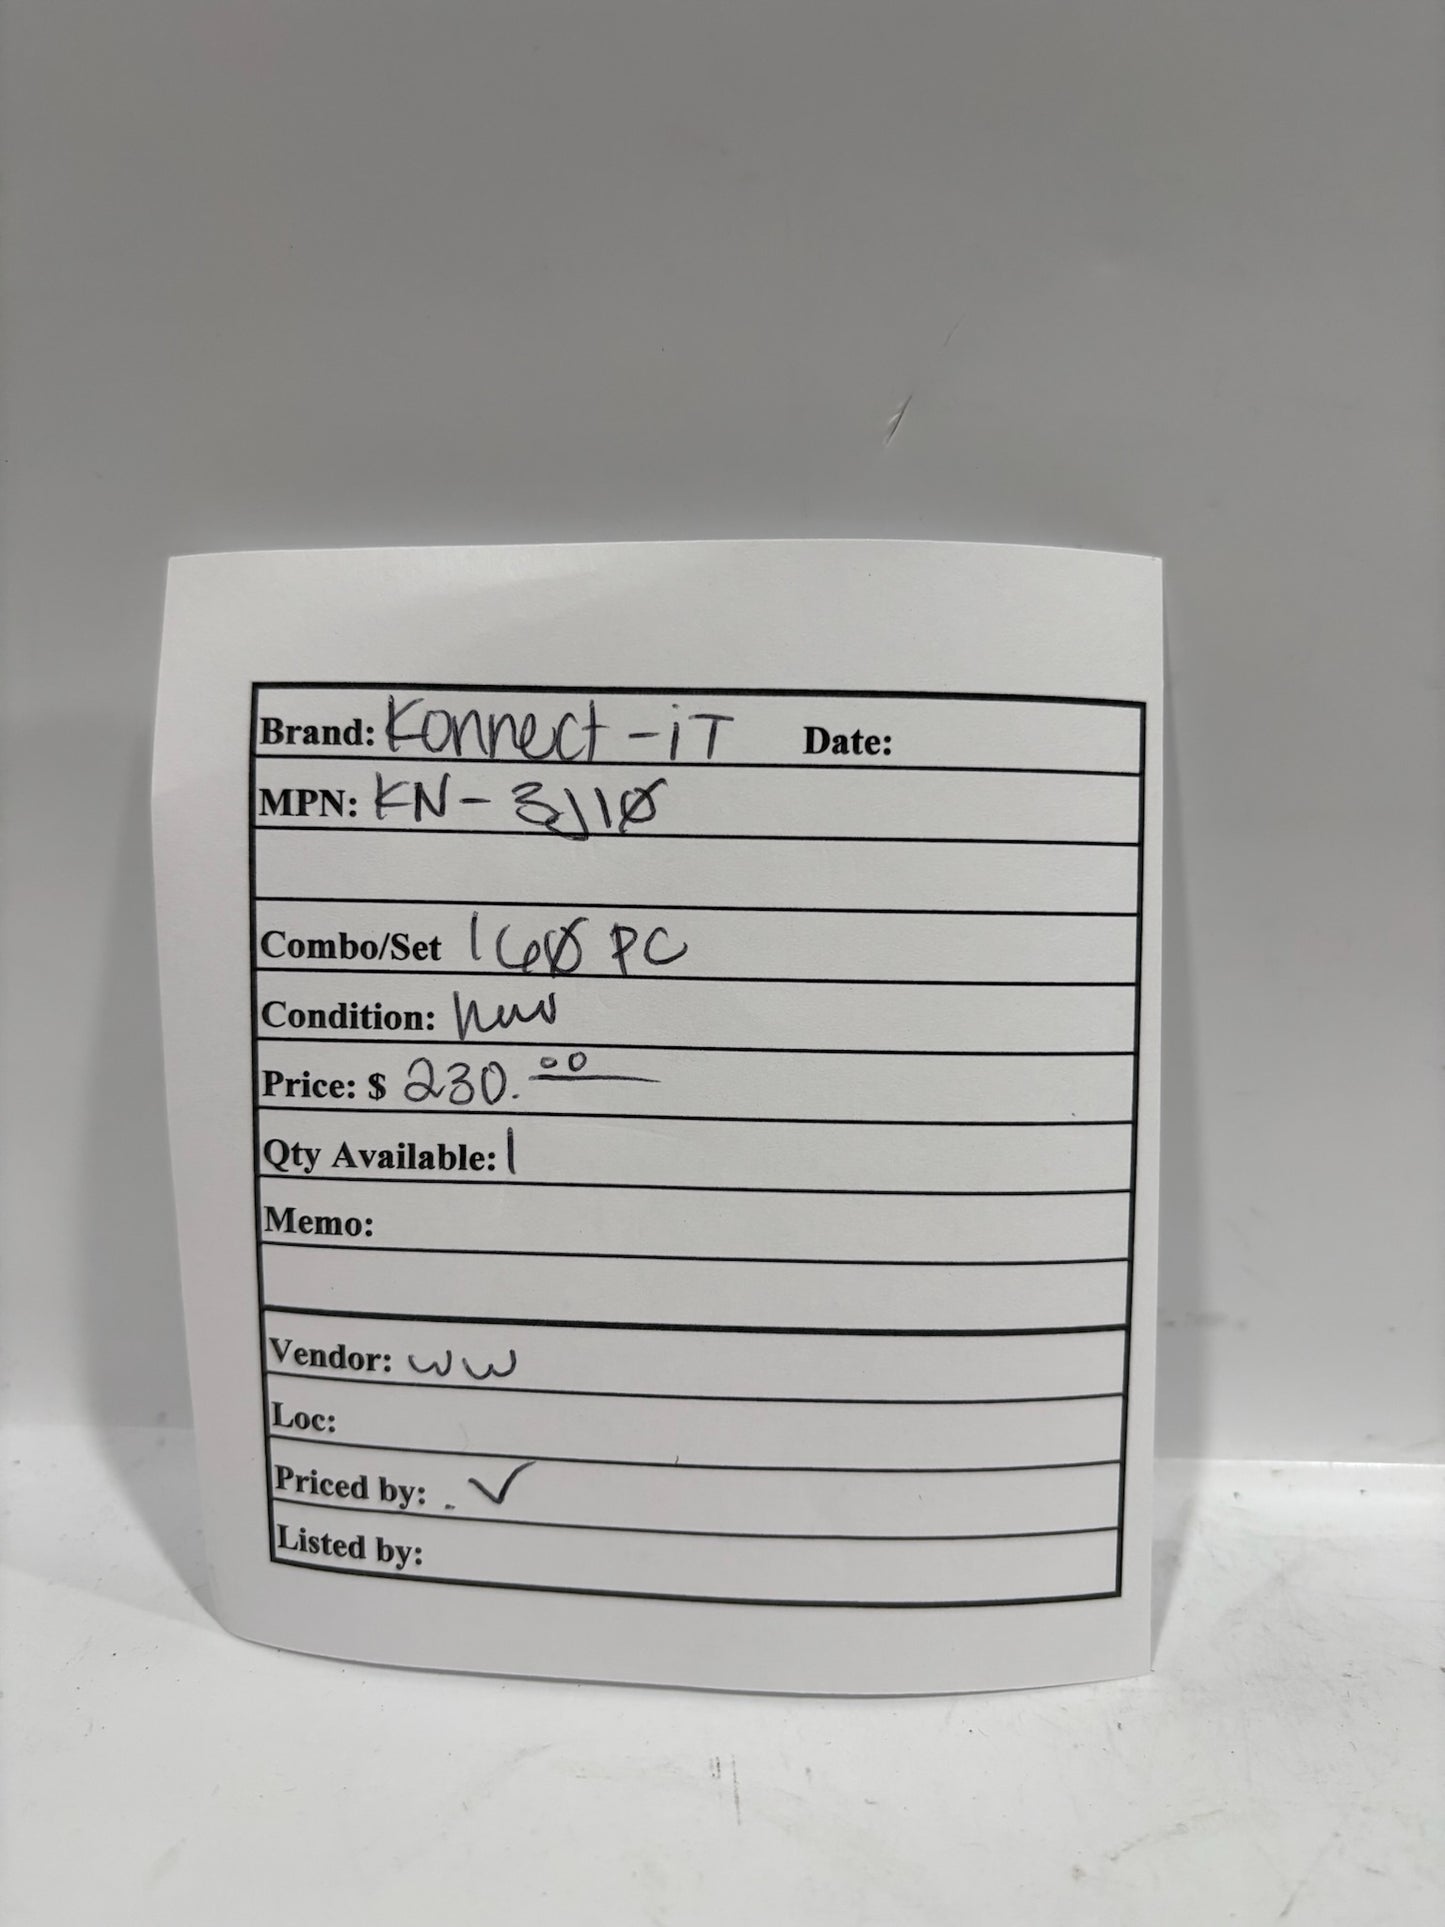 Brand: Konnect-iT Date:
MPN: KN-3J110
Combo/Set 160 PC
Condition: new
Price: $ 230.00
Qty Available: 1
Memo:
Vendor: WW
Loc:
Priced by: ✓
Listed by: